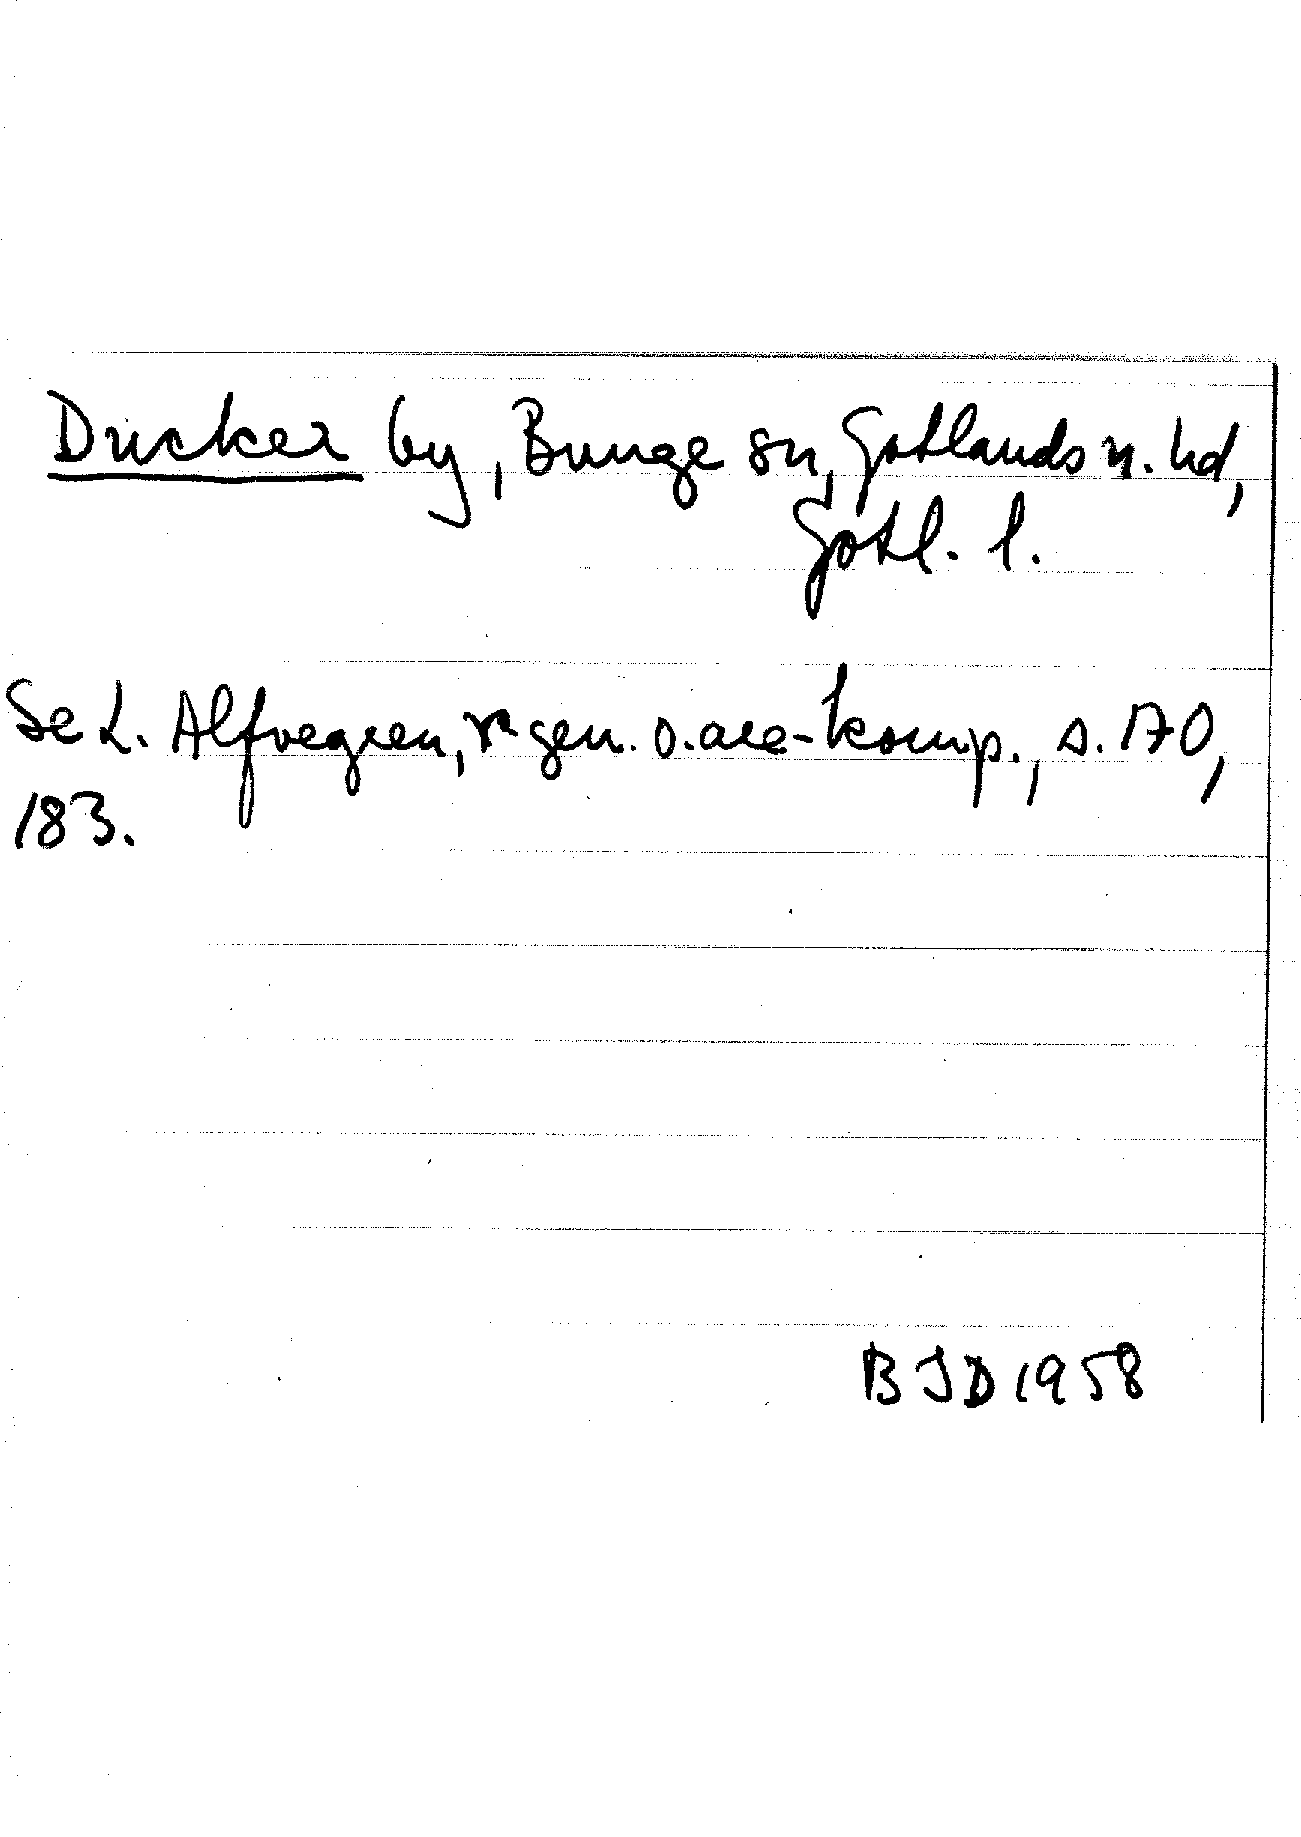 Ducker by, Bunge sn, Gotlands n. hd,
Gotl. l.
Se L. Alfvegren, r-gen. o. are-komp., s. 170,
183.
BJD 1958